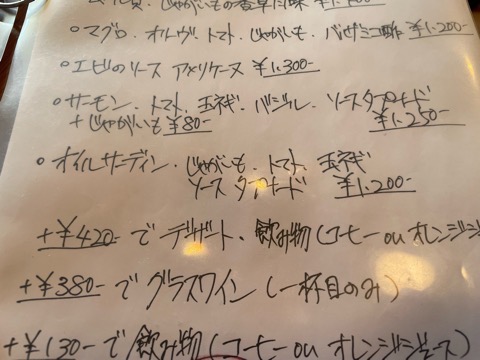 じゃがいもの香草風味
○マグロ、オリーヴ、トマト、じゃがいも、バルサミコ酢 ¥1.200-
○エビのソース アメリケーヌ ¥1.300-
○サーモン、トマト、玉ネギ、バジル、ソースタプナード
+じゃがいも ¥80- ¥1.250-
○オイルサーディン、じゃがいも、トマト、玉ネギ
ソース タプナード ¥1.200-
+¥420-で デザート・飲み物(コーヒー ou オレンジジ
+¥380-で グラスワイン(一杯目のみ)
+¥130-で 飲み物(コーヒー ou オレンジジュース)